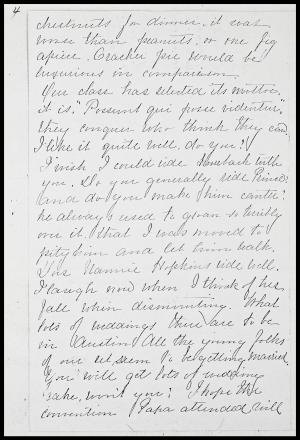 4
chestnuts for dinner, it was
worse than peanuts, or one fig
apiece. Cracker pie would be
luxurious in comparison.
Our class has selected its motto,
it is, "Possunt qui posse videntur,"
they conquer who think they can,
I like it quite well, do you?
I wish I could ride horseback with
you. Do you generally ride Prince?
And do you make him canter?
he always used to groan so terribly
over it, that I was moved to
pity him and let him walk.
Does Nannie Hopkins ride well.
I laugh now when I think of her
fall when dismounting. What
lots of weddings there are to be
in Austin All the young folks
of one set seem to be getting married.
You will get lots of wedding
cake, won't you? I hope the
convention Papa attended will